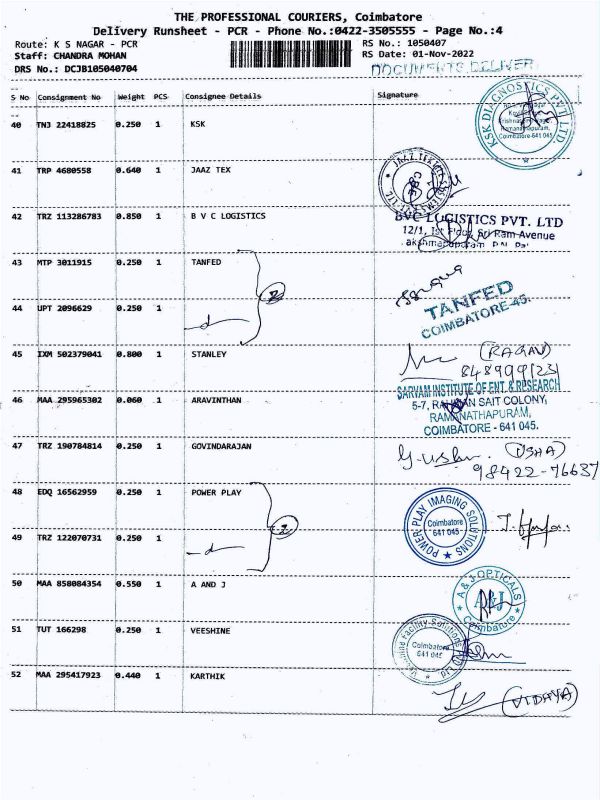 THE PROFESSIONAL COURIERS, Coimbatore
Delivery Runsheet - PCR - Phone No.:0422-3505555 - Page No.:4
Route: K S NAGAR - PCR
RS No.: 1050407
Staff: CHANDRA MOHAN
RS Date: 01-Nov-2022
DRS No.: DCJB105040704
DOCUMENTS DELIVER
S No Consignment No Weight PCS Consignee Details Signature
40 TNJ 22418825 0.250 1 KSK
KSK DIAGNOSTICS PVT. LTD.
Ramanathapuram,
Coimbatore-641 045
41 TRP 4680558 0.640 1 JAAZ TEX
42 TRZ 113286783 0.850 1 B V C LOGISTICS
BVC LOGISTICS PVT. LTD
12/1, 1st Floor, Sri Ram Avenue
43 MTP 3011915 0.250 1 TANFED
2
44 UPT 2096629 0.250 1
TANFED
COIMBATORE-45.
45 IXM 502379041 0.800 1 STANLEY
(RAGAV)
46 MAA 295965302 0.060 1 ARAVINTHAN
SARVAM INSTITUTE OF ENT. & RESEARCH
SAIT COLONY,
RAMANATHAPURAM,
COIMBATORE - 641 045.
47 TRZ 190784814 0.250 1 GOVINDARAJAN
(USHA)
98422-76637
48 EDQ 16562959 0.250 1 POWER PLAY
2
POWER PLAY IMAGING SOLUTIONS
Coimbatore
641 045
49 TRZ 122070731 0.250 1
50 MAA 858084354 0.550 1 A AND J
A & J OPTICALS
A&J
Coimbatore
51 TUT 166298 0.250 1 VEESHINE
Facility Solutions
Coimbatore
641 045
52 MAA 295417923 0.440 1 KARTHIK
(VIDAYA)